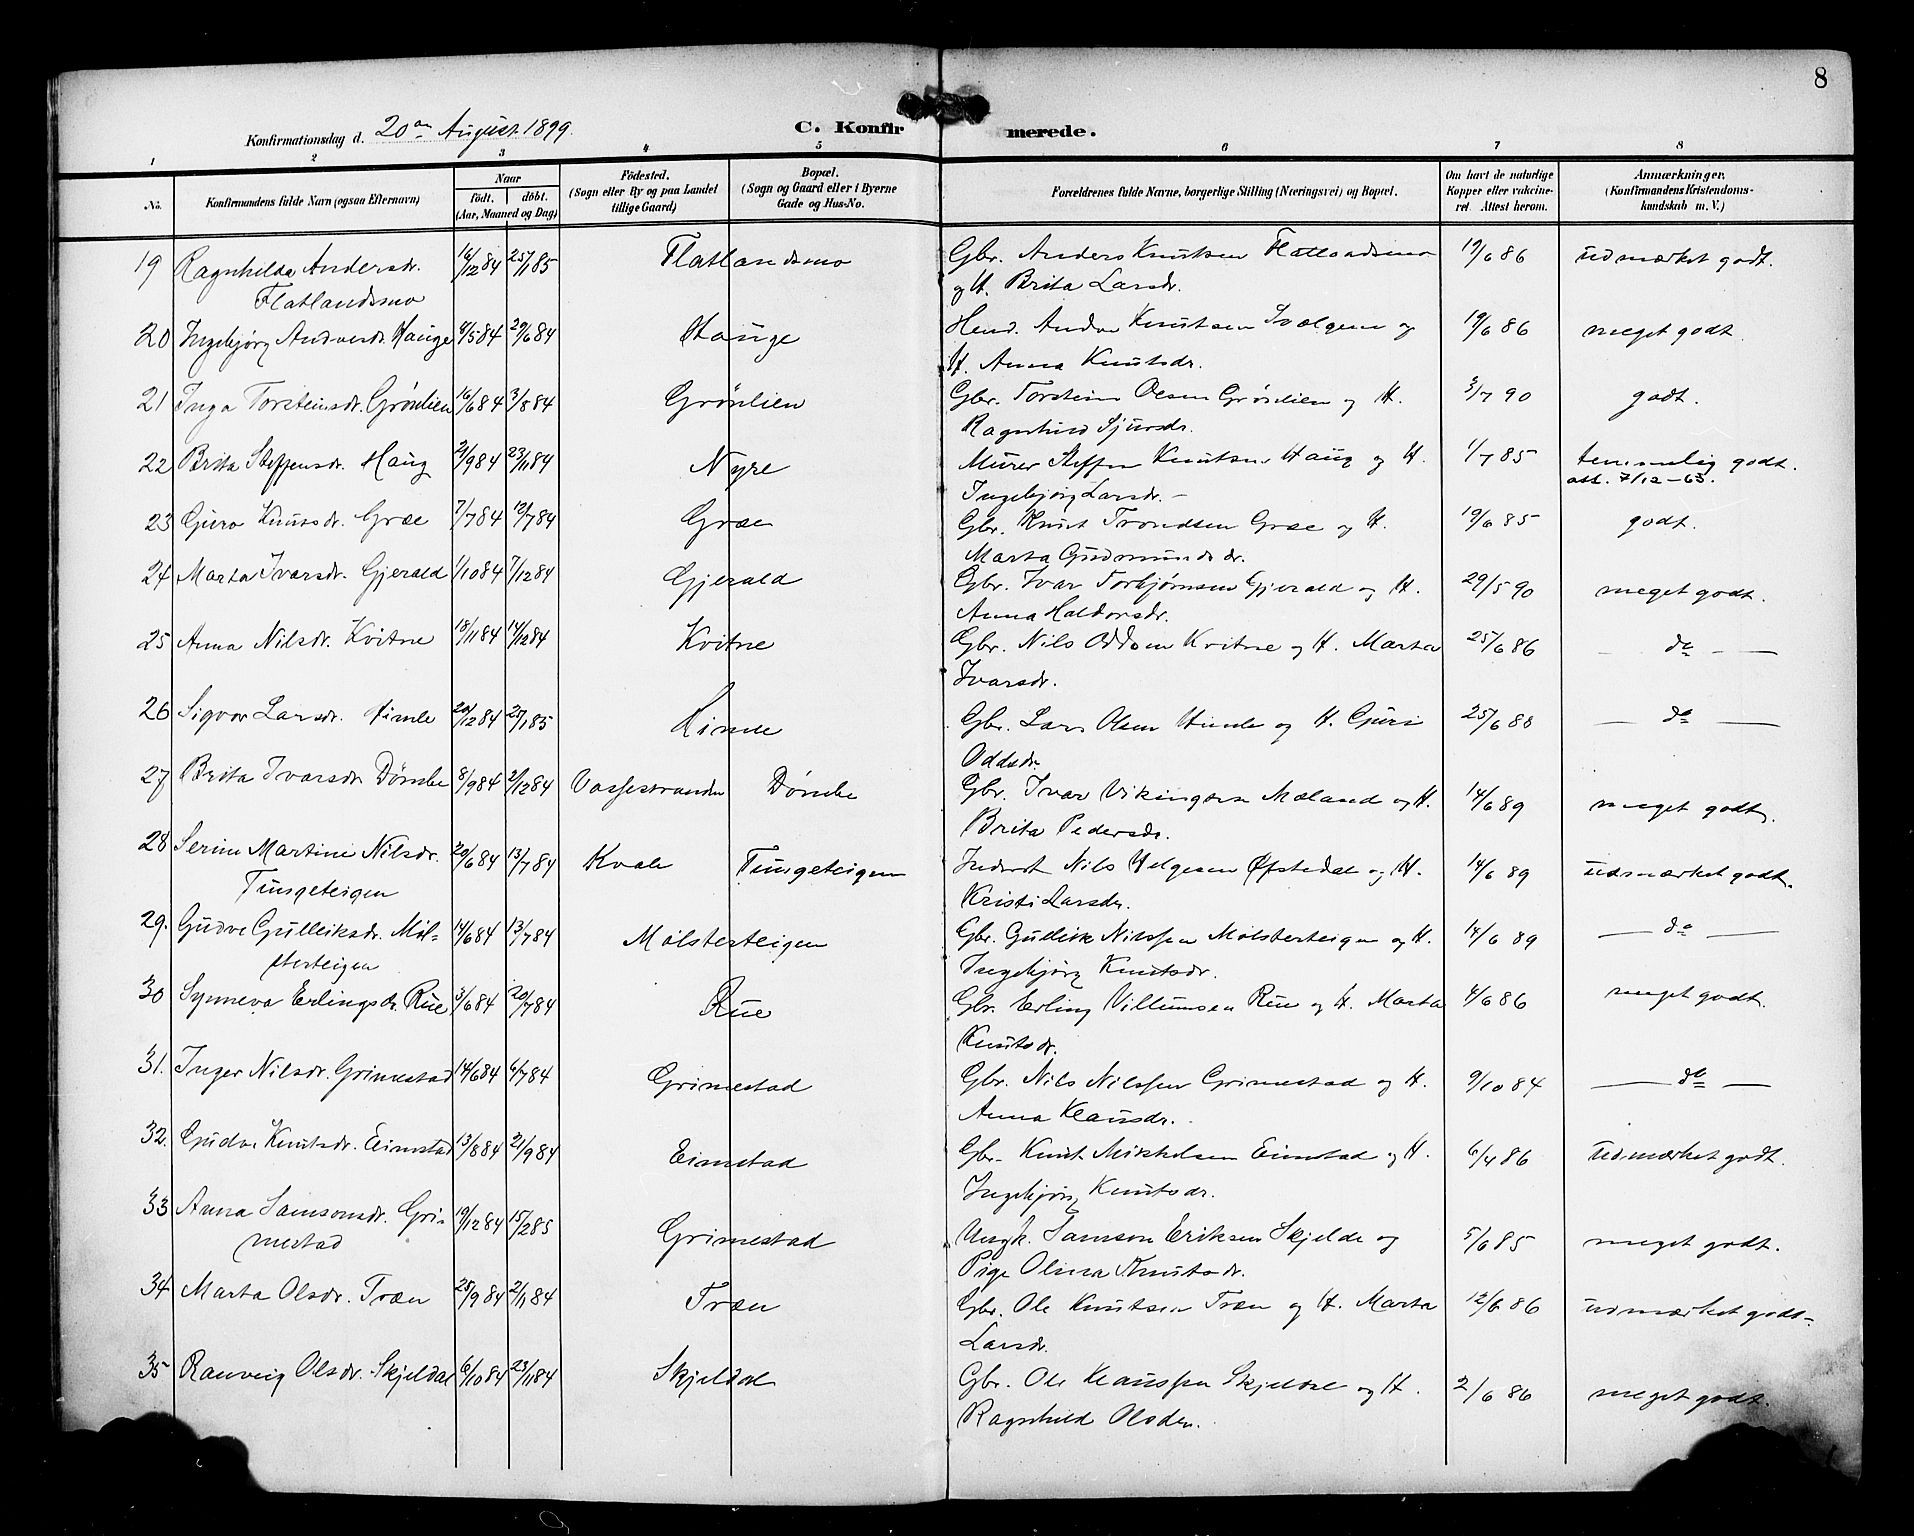 8
Konfirmationsdag d. 20de August 1899. C. Konfirmerede.
1 2 3 4 5 6 7 8
No. Konfirmandens fulde Navn (ogsaa Efternavn) Naar født. døbt. (Aar, Maaned og Dag) Fødested. (Sogn eller By og paa Landet tillige Gaard) Bopæl. (Sogn og Gaard eller i Byerne Gade og Hus-No. Forældrenes fulde Navne, borgerlige Stilling (Næringsvei) og Bopæl. Om havt de naturlige Kopper eller vakcineret. Attest herom. Anmærkninger. (Konfirmandens Kristendomskundskab m. V.)
19 Ragnhilda Andersdr. 16/12 84 25/1 85 Flatlandsmo Gbr. Anders Knutsen Flatlandsmo 19/6 86 udmærket godt.
Flatlandsmo og H. Brita Larsdr.
20 Ingebjørg Andersdr. Hauge 8/5 84 29/6 84 Hauge Knutsen og 19/6 86 meget godt.
H. Anna Knutsdr.
21 Inga Torsteinsdr. Grönlien 16/6 84 3/8 84 Grönlien Gbr. Torstein Olsen Grönlien og H. 3/7 90 godt.
Ragnhild Sjursdr.
22 Brita Steffensdr. Haug 2/9 84 23/11 84 Nyre Murer Steffen Knutsen Haug og H. 1/7 85 temmelig godt.
Ingebjørg Larsdr. – att. 7/12-63.
23 Guro Knutsdr. Græe 7/7 84 12/7 84 Græe Gbr. Knut Trondsen Græe og H. 19/6 85 godt.
Marta Gudmundsdr.
24 Marta Ivarsdr. Gjerald 1/10 84 7/12 84 Gjerald Gbr. Ivar Torbjørnsen Gjerald og H. 29/5 90 meget godt.
Anna Haldorsdr.
25 Anna Nilsdr. Kvitne 18/11 84 14/12 84 Kvitne Gbr. Nils Oddsen Kvitne og H. Marta 25/6 86 — do —
Ivarsdr.
26 Sigvor Larsdr. Himle 20/12 84 25/1 85 Gbr. Lars Olsen Himle og H. Guri 25/6 88 — do —
Oddsdr.
27 Brita Ivarsdr. Dömbe 8/9 84 2/12 84 Vossestranden Dömbe Gbr. Ivar Vikingsen Mæland og H. 14/6 89 meget godt.
Brita Pedersdr.
28 Serine Martine Nilsdr. 20/6 84 13/7 84 Kvale Tungeteigen Inderst Nils Helgesen Øfstedal og H. 14/6 89 udmærket godt.
Tungeteigen Kristi Larsdr.
29. Gudve Gulleiksdr. Möl- 14/6 84 13/7 84 Mölsterteigen Gbr. Gulleik Nilssen Mölsterteigen og H. 14/6 89 — do —
sterteigen Ingebjørg Knutsdr.
30 Synneva Erlingsdr. Rue 3/6 84 20/7 84 Rue Gbr. Erling Villumsen Rue og H. Marta 4/6 86 meget godt.
Knutsdr.
31. Inger Nilsdr. Grimestad 14/6 84 6/7 84 Grimestad Gbr. Nils Nilssen Grimestad og H. 9/10 84 — do —
Anna Klausdr.
32. Gudve Knutsdr. Eimstad 13/8 84 21/9 84 Eimstad Gbr. Knut Mikkelsen Eimstad og H. 6/4 86 udmærket godt.
Ingebjörg Knutsdr.
33 Anna Samsonsdr. Gri- 19/12 84 15/2 85 Grimestad Ungk. Samson Eriksen Skjelde og 5/6 85 meget godt.
mestad Pige Olina Knutsdr.
34 Marta Olsdr. Træn 25/9 84 2/11 84 Træn Gbr. Ole Knutsen Træn og H. Marta 12/6 86 udmærket godt.
Larsdr.
35 Ranveig Olsdr. Skjeldal 6/10 84 23/11 84 Skjeldal Gbr. Ole Klaussen Skjeldal og H. 2/6 86 meget godt.
Ragnhild Olsdr.